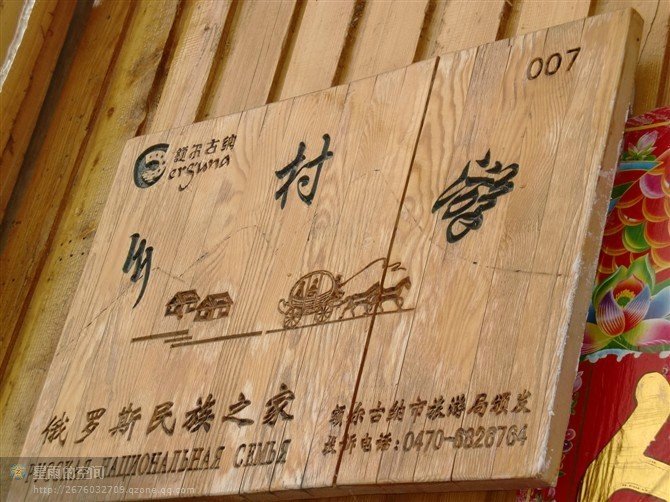 007
额尔古纳
erguna
乡村游
俄罗斯民族之家
РУССКАЯ НАЦИОНАЛЬНАЯ СЕМЬЯ
额尔古纳市旅游局颁发
投诉电话:0470-6826764
星雨的空间
http://2676032705.qzone.qq.com